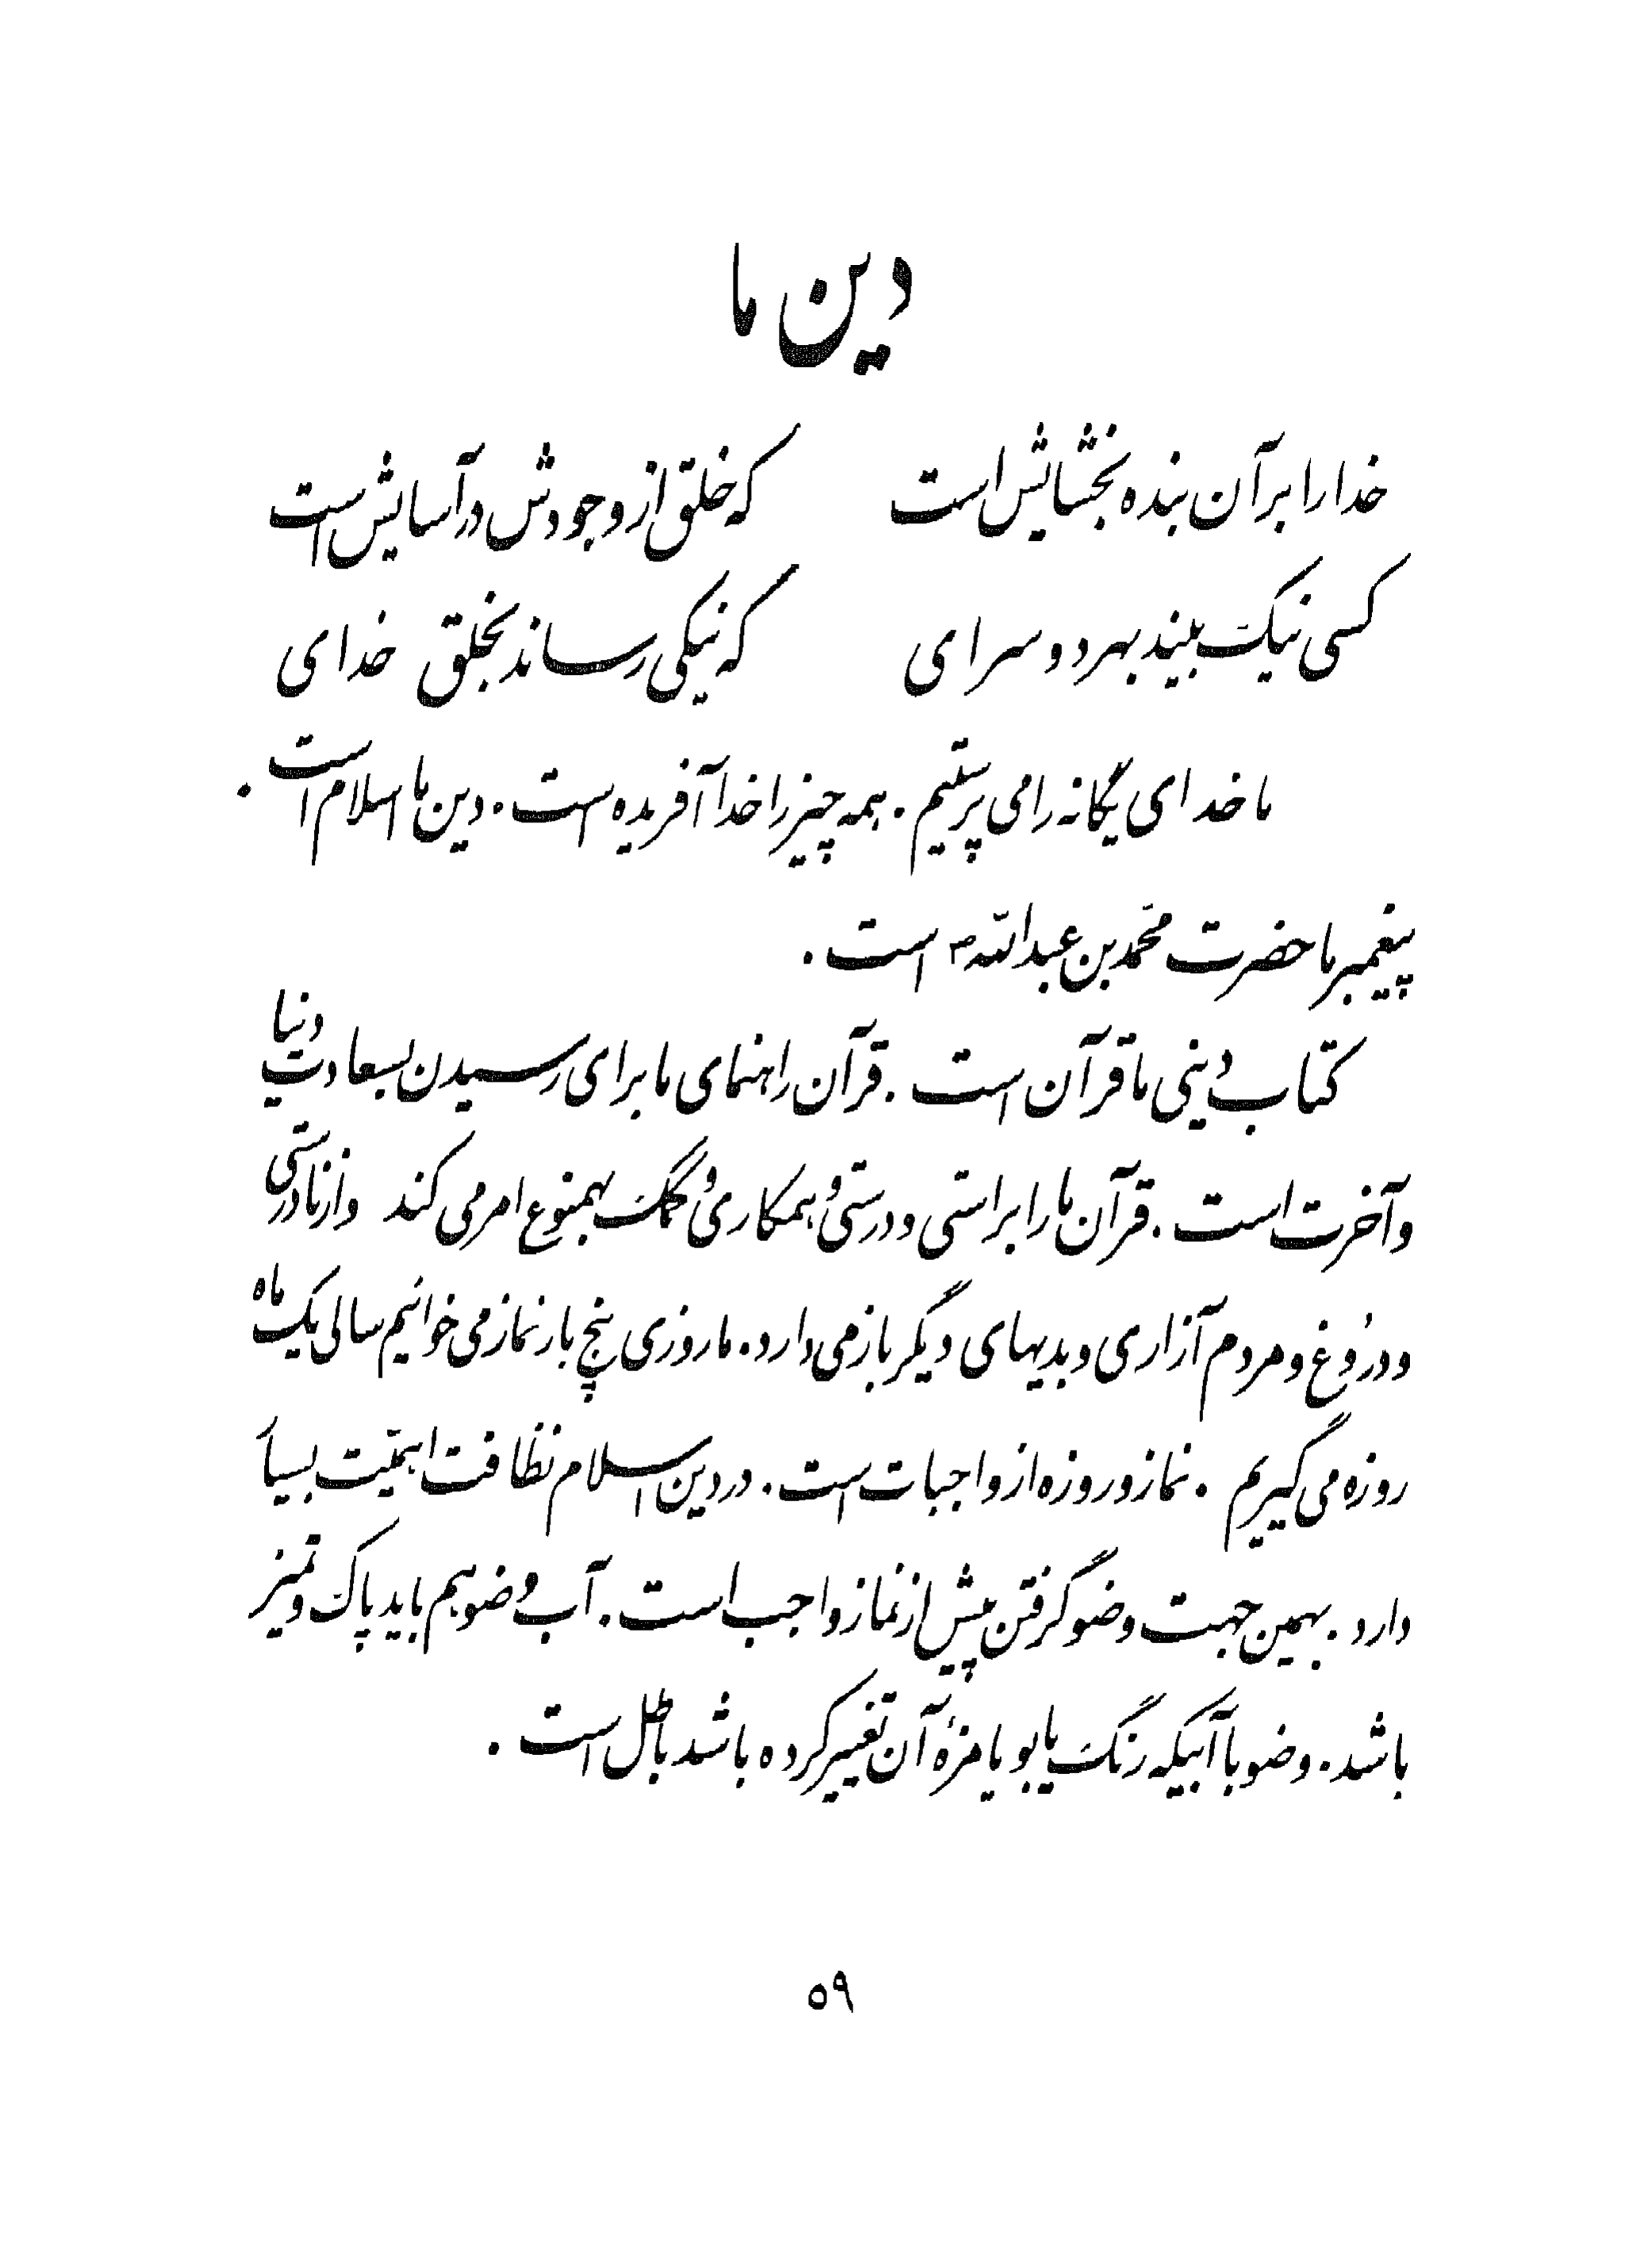 دین ما
خدا را بر آن بنده بخشایش است که خلق از وجودش در آسایش است
کسی نیک بیند بهر دو سرای که نیکی رساند بخلق خدای
ما خدای یگانه را می پرستیم . همه چیز را خدا آفریده است . دین ما اسلام است .
پیغمبر ما حضرت محمّد بن عبداللّه ص است .
کتاب دینی ما قرآن است . قرآن راهنمای ما برای رسیدن بسعادت دنیا
و آخرت است . قرآن ما را براستی و درستی و همکاری و کمک بهمنوع امر می کند و از نادرستی
و دروغ و مردم آزاری و بدیهای دیگر باز می دارد . ما روزی پنج بار نماز می خوانیم سالی یک ماه
روزه می گیریم . نماز و روزه از واجبات است . در دین اسلام نظافت اهمّیّت بسیار
دارد . بهمین جهت وضو گرفتن پیش از نماز واجب است . آب وضو هم باید پاک و تمیز
باشد . وضو با آبیکه رنگ یا بو یا مزۀ آن تغییر کرده باشد باطل است .
۵۹